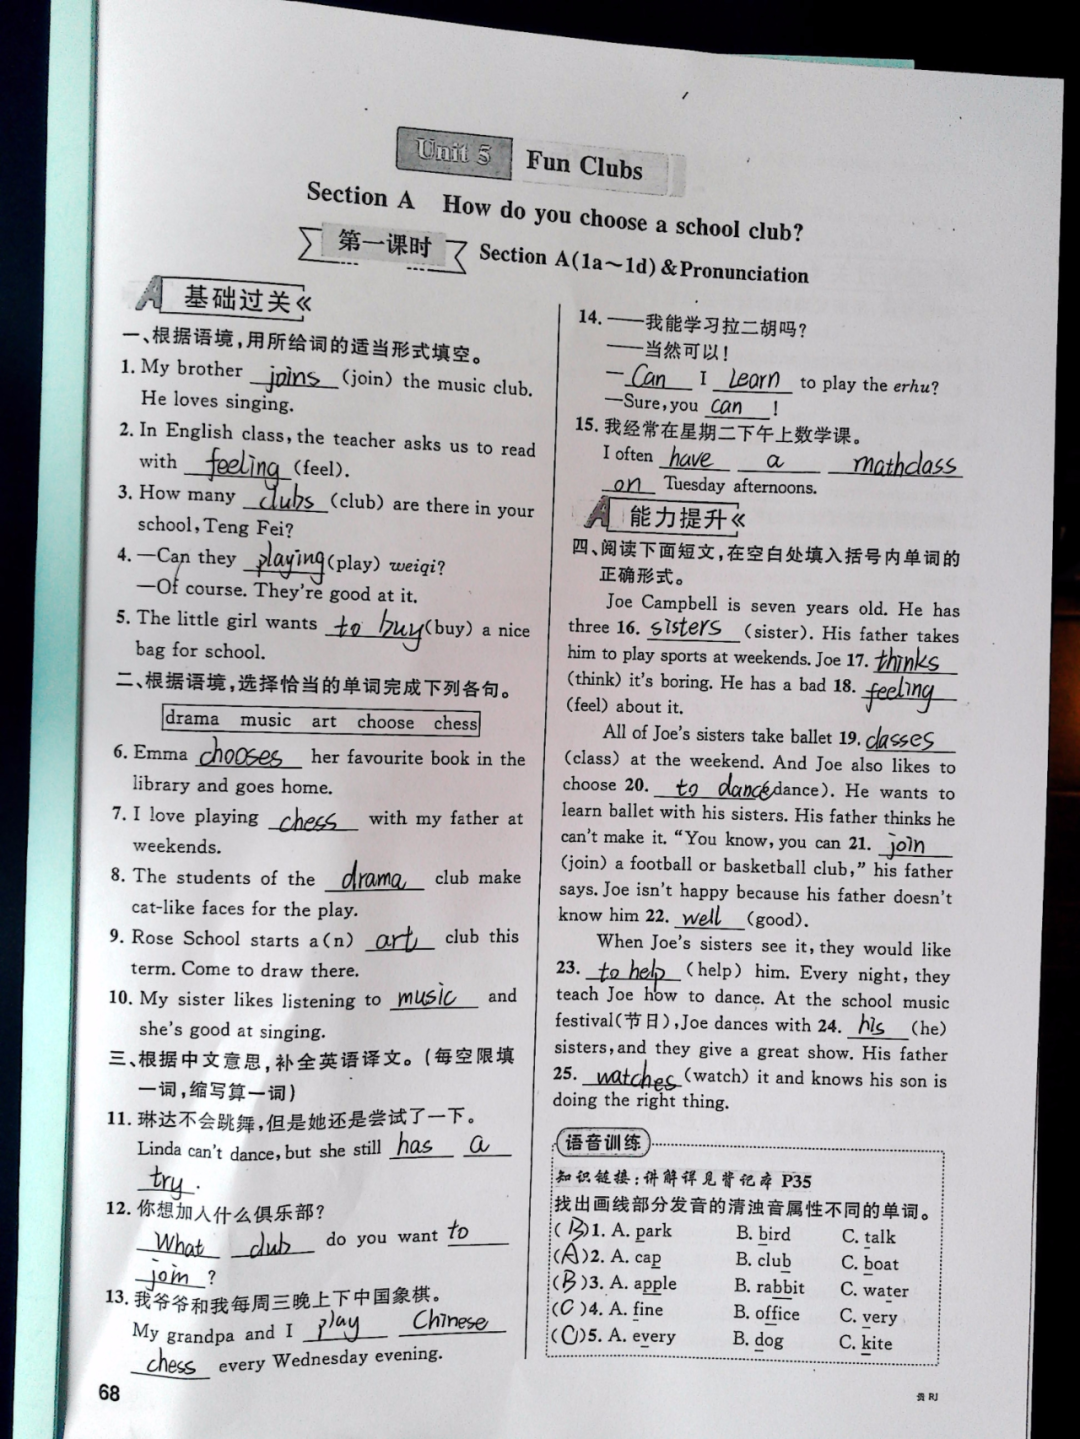 Unit 5 Fun Clubs
Section A How do you choose a school club?
第一课时 Section A(1a～1d)&Pronunciation
A 基础过关
一、根据语境,用所给词的适当形式填空。
1. My brother joins (join) the music club.
He loves singing.
2. In English class, the teacher asks us to read
with feeling (feel).
3. How many clubs (club) are there in your
school, Teng Fei?
4. —Can they playing (play) weiqi?
—Of course. They're good at it.
5. The little girl wants to buy (buy) a nice
bag for school.
二、根据语境,选择恰当的单词完成下列各句。
drama music art choose chess
6. Emma chooses her favourite book in the
library and goes home.
7. I love playing chess with my father at
weekends.
8. The students of the drama club make
cat-like faces for the play.
9. Rose School starts a(n) art club this
term. Come to draw there.
10. My sister likes listening to music and
she's good at singing.
三、根据中文意思,补全英语译文。(每空限填
一词,缩写算一词)
11. 琳达不会跳舞,但是她还是尝试了一下。
Linda can't dance, but she still has a
try.
12. 你想加入什么俱乐部?
What club do you want to
join ?
13. 我爷爷和我每周三晚上下中国象棋。
My grandpa and I play Chinese
chess every Wednesday evening.
68
14. ——我能学习拉二胡吗?
——当然可以!
—Can I learn to play the erhu?
—Sure, you can !
15. 我经常在星期二下午上数学课。
I often have a mathclass
on Tuesday afternoons.
A 能力提升
四、阅读下面短文,在空白处填入括号内单词的
正确形式。
Joe Campbell is seven years old. He has
three 16. sisters (sister). His father takes
him to play sports at weekends. Joe 17. thinks
(think) it's boring. He has a bad 18. feeling
(feel) about it.
All of Joe's sisters take ballet 19. classes
(class) at the weekend. And Joe also likes to
choose 20. to dance (dance). He wants to
learn ballet with his sisters. His father thinks he
can't make it. "You know, you can 21. join
(join) a football or basketball club," his father
says. Joe isn't happy because his father doesn't
know him 22. well (good).
When Joe's sisters see it, they would like
23. to help (help) him. Every night, they
teach Joe how to dance. At the school music
festival(节日), Joe dances with 24. his (he)
sisters, and they give a great show. His father
25. watches (watch) it and knows his son is
doing the right thing.
语音训练
知识链接:讲解详见背记本 P35
找出画线部分发音的清浊音属性不同的单词。
(B)1. A. park B. bird C. talk
(A)2. A. cap B. club C. boat
(B)3. A. apple B. rabbit C. water
(C)4. A. fine B. office C. very
(C)5. A. every B. dog C. kite
贵 RJ